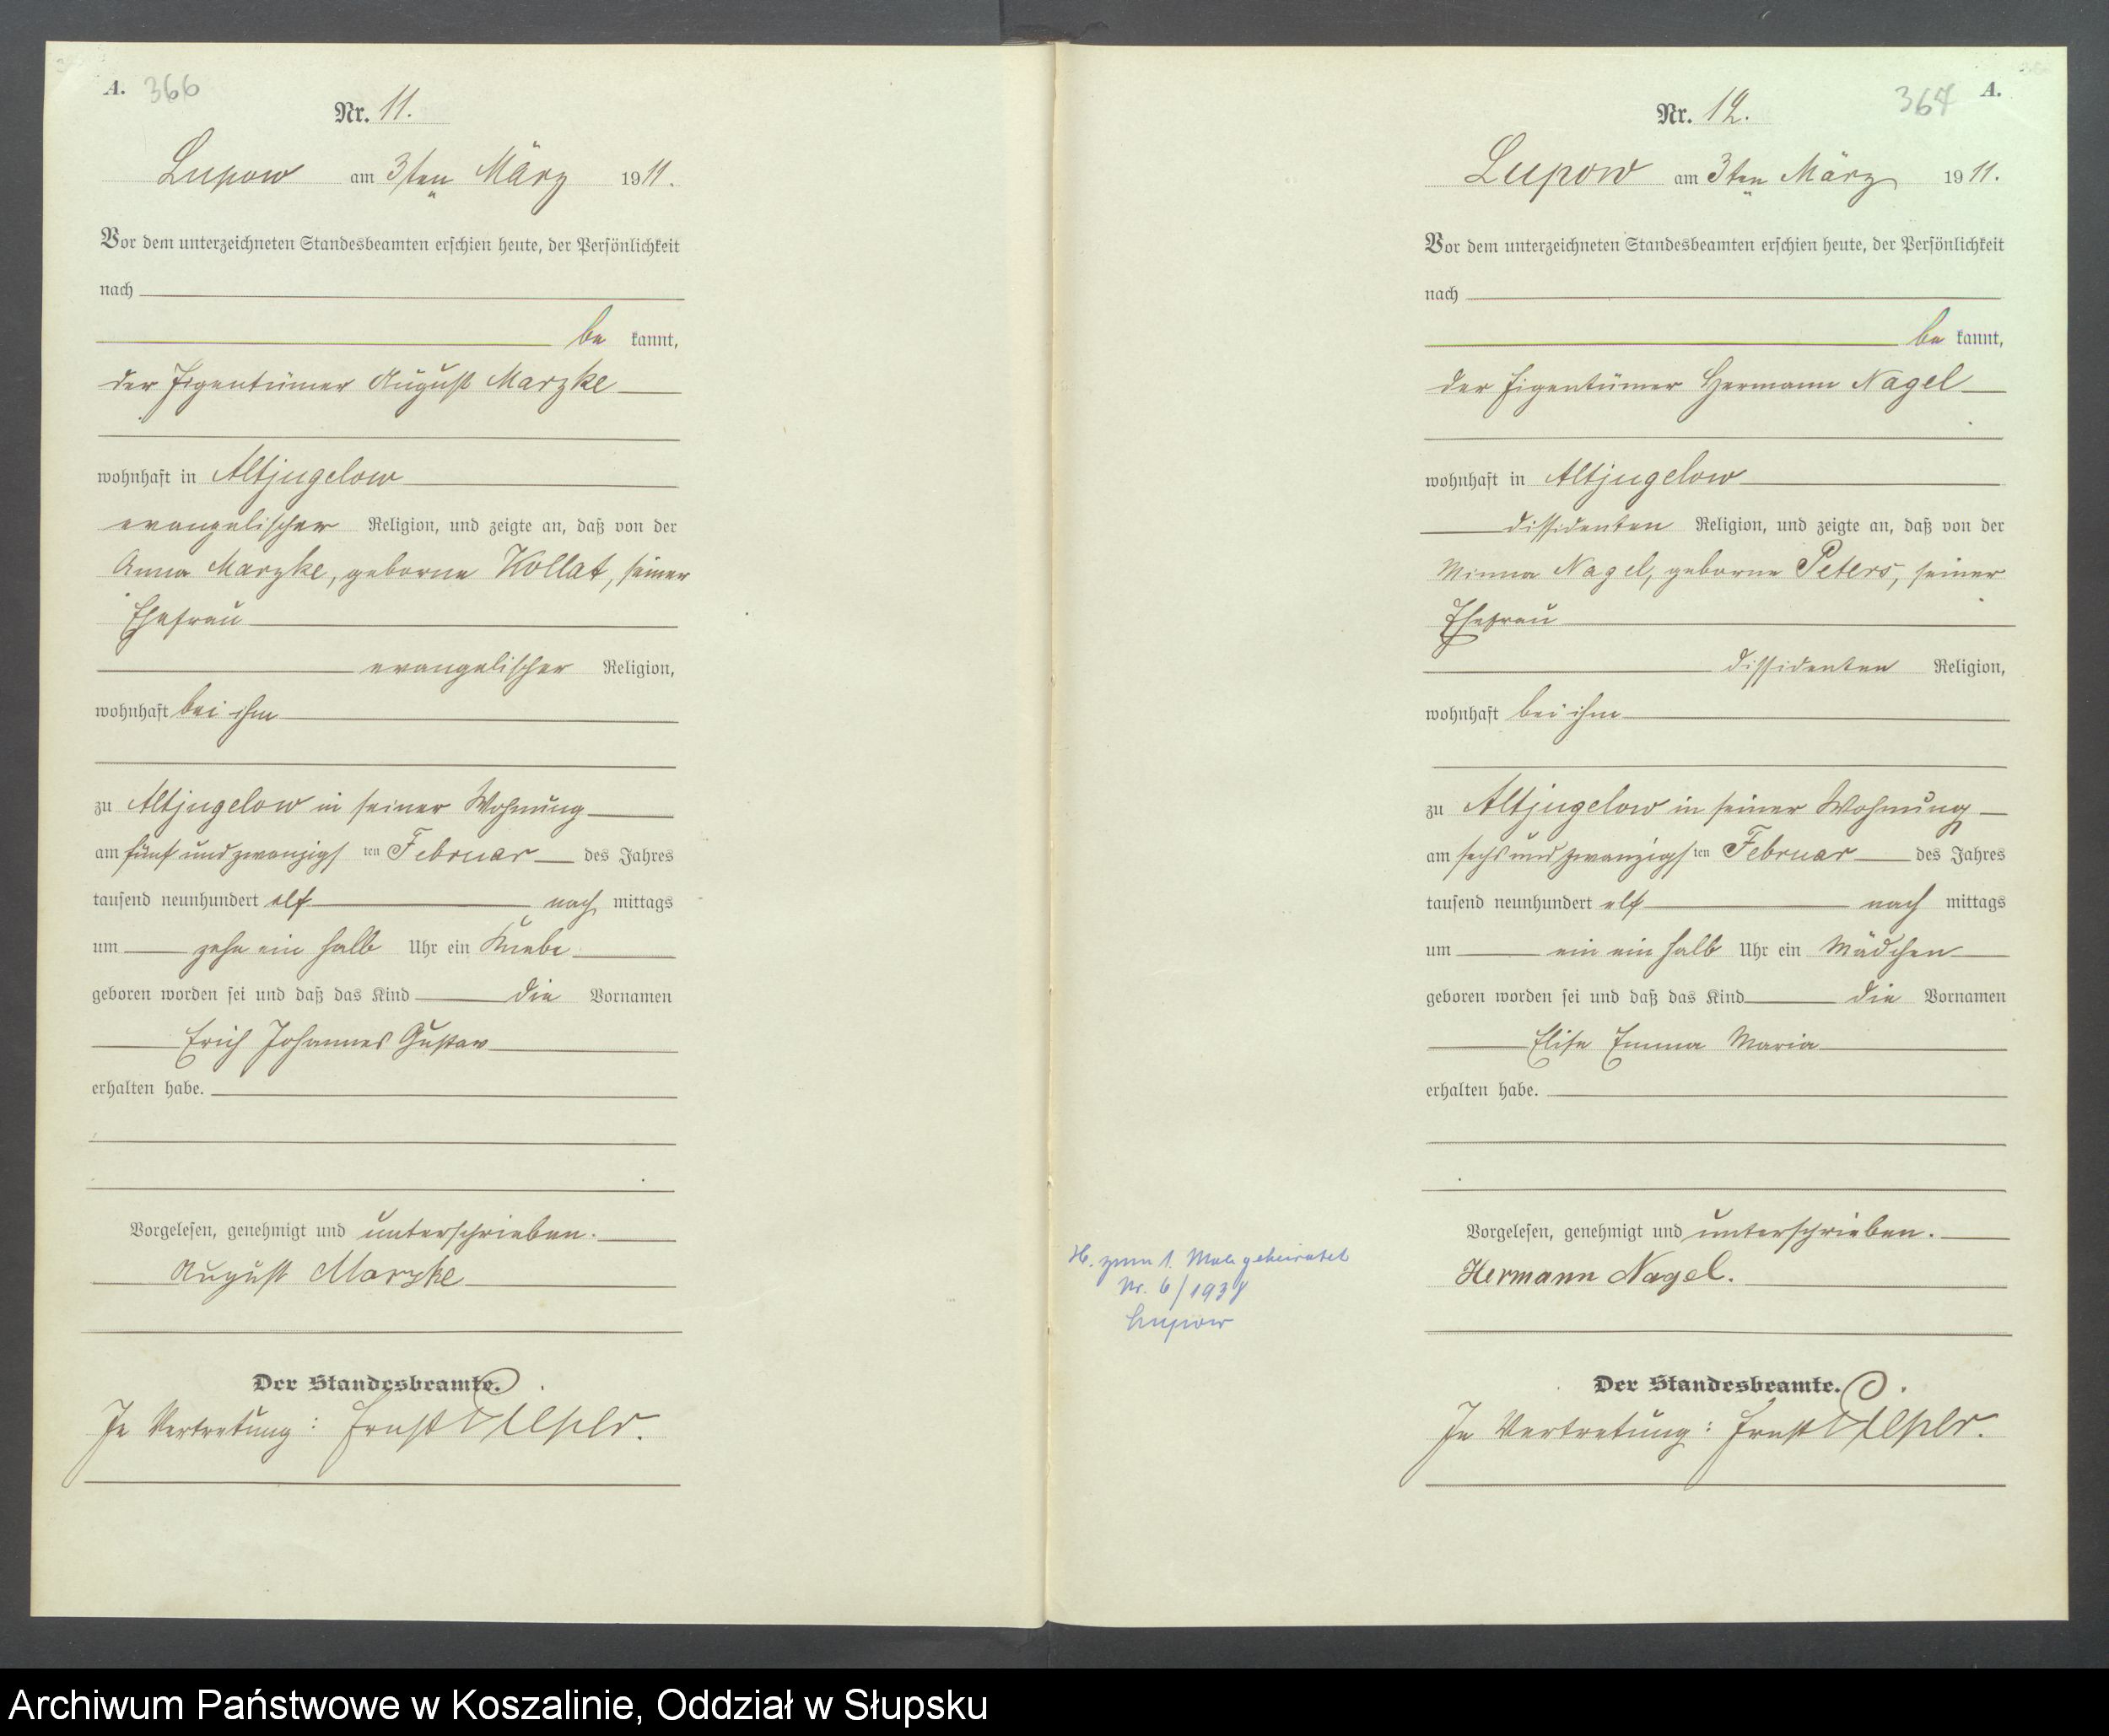 A. 366
Nr. 11.
Lupow am 3ten März 1911.
Vor dem unterzeichneten Standesbeamten erschien heute, der Persönlichkeit
nach
be kannt,
der Eigentümer August Marzke
wohnhaft in Altjugelow
evangelischer Religion, und zeigte an, daß von der
Anna Marzke, geborne Kollat, seiner
Ehefrau
evangelischer Religion,
wohnhaft bei ihm
zu Altjugelow in seiner Wohnung
am fünf und zwanzigsten Februar des Jahres
tausend neunhundert elf nach mittags
um zehn ein halb Uhr ein Knabe
geboren worden sei und daß das Kind die Vornamen
Erich Johannes Gustav
erhalten habe.
Vorgelesen, genehmigt und unterschrieben.
August Marzke
Der Standesbeamte.
In Vertretung: Ernst
364 A.
Nr. 12.
Lupow am 3ten März 1911.
Vor dem unterzeichneten Standesbeamten erschien heute, der Persönlichkeit
nach
be kannt,
der Eigentümer Hermann Nagel
wohnhaft in Altjugelow
dissidenten Religion, und zeigte an, daß von der
Minna Nagel, geborne Peters, seiner
Ehefrau
dissidenten Religion,
wohnhaft bei ihm
zu Altjugelow in seiner Wohnung
am sechs und zwanzigsten Februar des Jahres
tausend neunhundert elf nach mittags
um ein ein halb Uhr ein Mädchen
geboren worden sei und daß das Kind die Vornamen
Elise Emma Maria
erhalten habe.
Vorgelesen, genehmigt und unterschrieben.
Hermann Nagel.
Der Standesbeamte.
In Vertretung: Ernst
H. zum 1. Male geheiratet
Nr. 6/1934
Lupow
Archiwum Państwowe w Koszalinie, Oddział w Słupsku